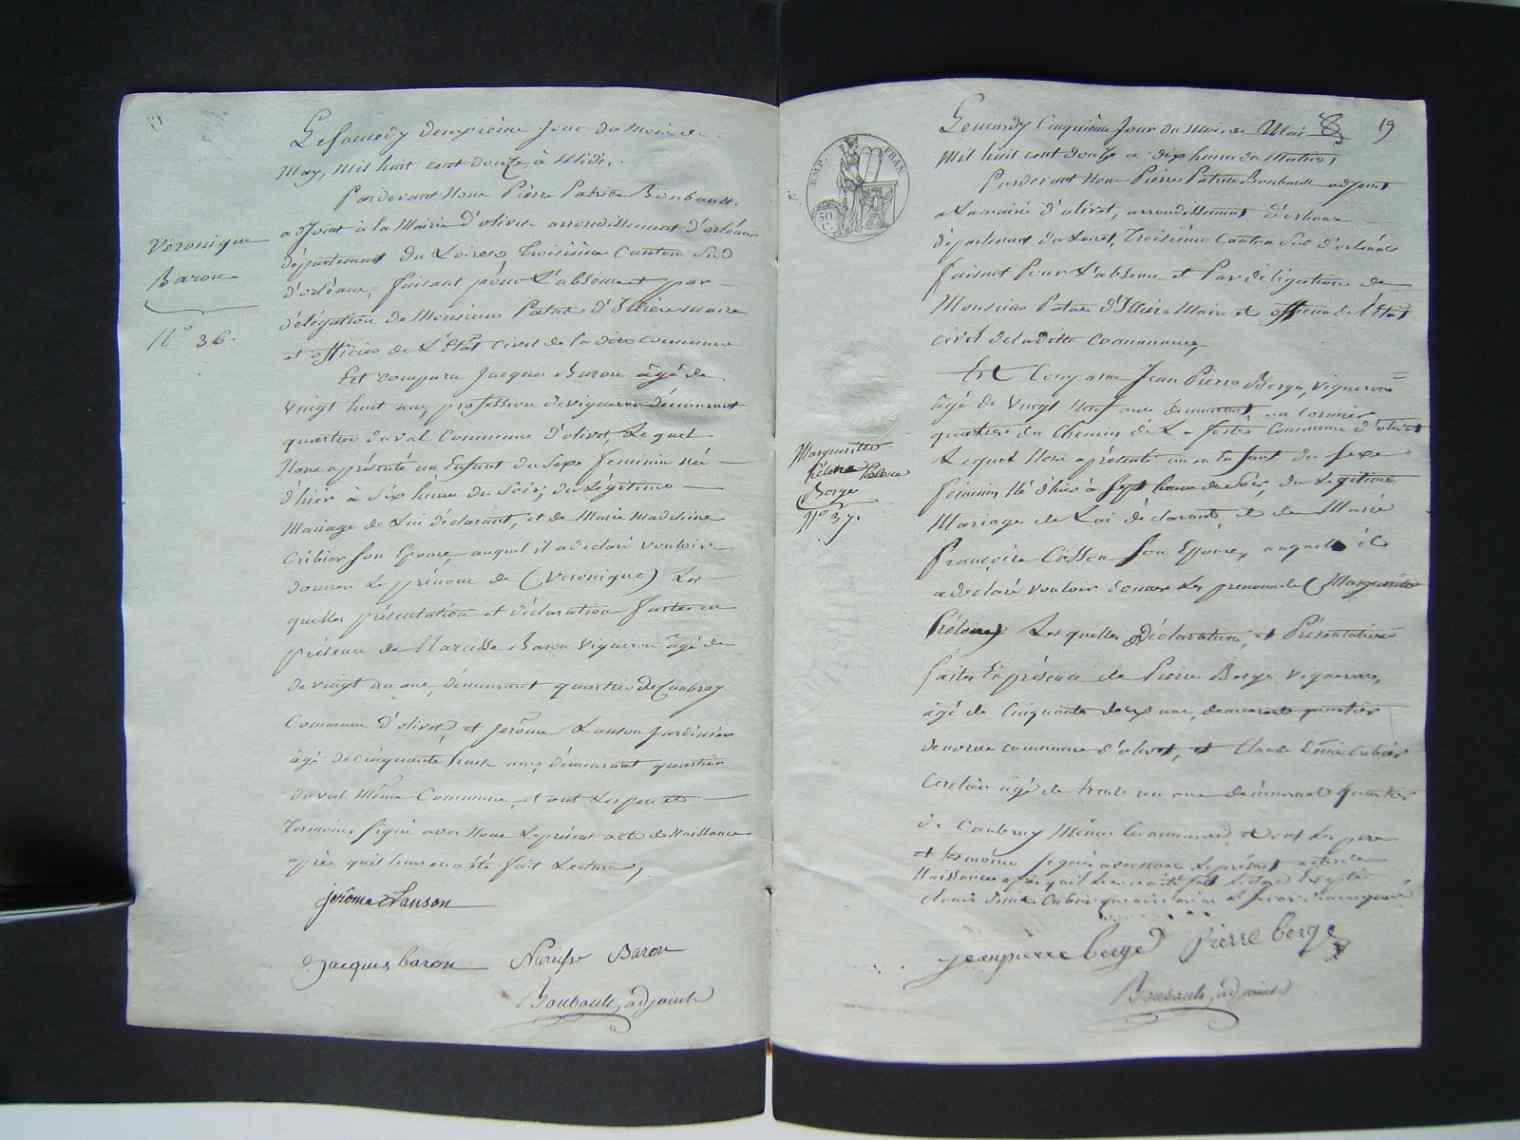 Le samedy deuxième jour du mois de
May, mil huit cent douze à Midi,
Pardevant Nous Pierre Patrice Boubault
adjoint à la Mairie d'olivet arrondissement d'orléans
département du Loiret, troisième Canton Sud
d'orléans, faisant pour L'absence et par
délégation de Monsieur Patas d'Illiers maire
et officier de L'état Civil de la dite Commune
Est comparu Jacques Baron âgé de
vingt huit ans, profession de vigneron demeurant
quartier du val Commune d'olivet, Lequel
Nous a présenté un Enfant du Sexe feminin Né
d'hier à Six heure du Soir, du Légitime
Mariage de Lui déclarant, et de Marie Madeleine
Cribier son Epouse, auquel il a declaré vouloir
donner Le prénom de (Véronique) Les
quelles présentation et déclaration faites en
présence de Narcisse Baron Vigneron âgé de
de vingt un ans, demeurant quartier de Caubray
Commune d'olivet, et Jerôme Lanson Jardinier
âgé de cinquante huit ans, demeurant quartier
du val Même Commune, et ont Les pere et
Temoins signé avec Nous Le présent acte de Naissance
après qu'il leur en a été fait Lecture,
jérôme Lanson
Jacques baron Narcisse Baron
Boubault, adjoint
Véronique
Baron
N° 36.
19
Le mardy Cinquième Jour du Mois de Mai
Mil huit cent douze à dix heures du Matin,
Pardevant Nous Pierre Patrice Boubault adjoint
a La mairie d'olivet, arrondissement d'orleans
département du Loiret, troisième Canton Sud d'orléans
faisant Pour L'absence et Par délégation de
Monsieur Patas d'Illiers Maire et officier de l'Etat
civil de La dite Commune,
Est Comparu Jean Pierre Berge, vigneron
âgé de vingt neuf ans demeurant au
quartier du Chemin de La ferté Commune d'olivet
Lequel Nous a présenté un enfant du Sexe
féminin, Né d'hier à Sept heure du Soir, du Légitime
Mariage de Lui déclarant, et de Marie
Françoise son Epouse, auquel il
a declaré vouloir donner Les prenoms de (Marguerite
hélène) Les quelles Déclaration, et Présentation
faites En présence de Pierre Berge Vigneron,
âgé de Cinquante deux ans, demeurant quartier
commune d'olivet, et Claude
âgé de trente un ans demeurant quartier
de Caubray Même Commune, et ont Les pere
et temoins signé avec nous Le présent acte de
Naissance après qu'il leur en a été fait Lecture
jean pierre bergé Pierre berge
Boubault, adjoint
Marguerite
hélène
Berge
N° 37.
EMP. FRAN
50
C.